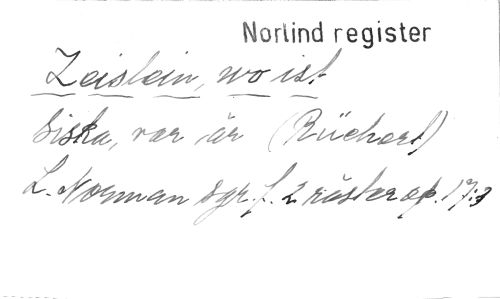 Norlind register
Zeislein, wo ist
Siska, var är (Rückert)
L. Norman sgr. f. 2 röster op. 17:3